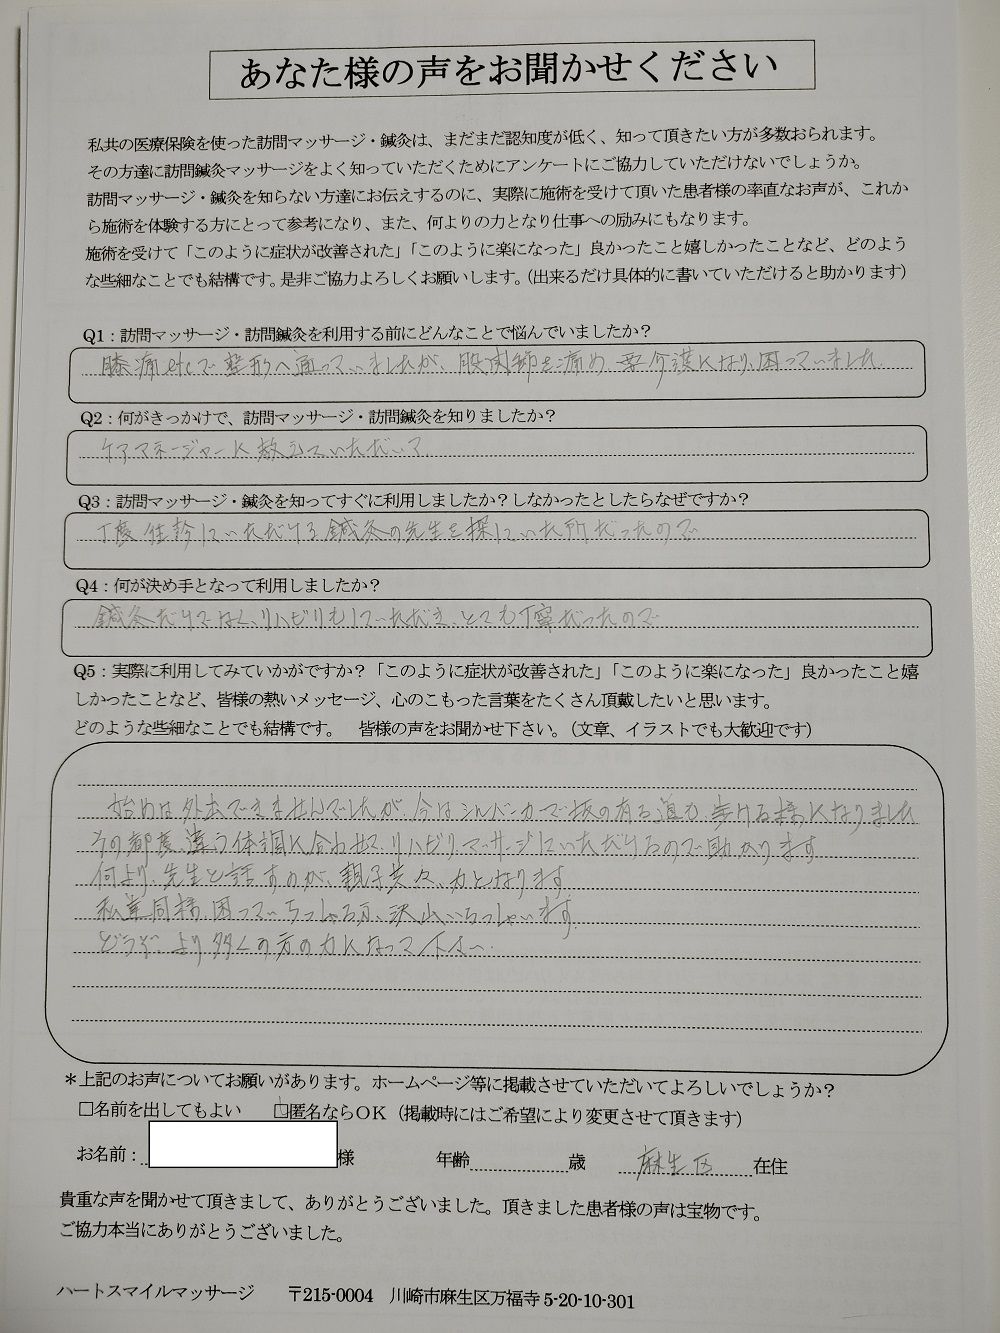 あなた様の声をお聞かせください
私共の医療保険を使った訪問マッサージ・鍼灸は、まだまだ認知度が低く、知って頂きたい方が多数おられます。
その方達に訪問鍼灸マッサージをよく知っていただくためにアンケートにご協力していただけないでしょうか。
訪問マッサージ・鍼灸を知らない方達にお伝えするのに、実際に施術を受けて頂いた患者様の率直なお声が、これか
ら施術を体験する方にとって参考になり、また、何よりの力となり仕事への励みにもなります。
施術を受けて「このように症状が改善された」「このように楽になった」良かったこと嬉しかったことなど、どのよう
な些細なことでも結構です。是非ご協力よろしくお願いします。（出来るだけ具体的に書いていただけると助かります）
Q1：訪問マッサージ・訪問鍼灸を利用する前にどんなことで悩んでいましたか？
膝痛etcで整形へ通っていましたが、股関節を痛め、要介護になり、困っていました
Q2：何がきっかけで、訪問マッサージ・訪問鍼灸を知りましたか？
ケアマネージャーに教えていただいて
Q3：訪問マッサージ・鍼灸を知ってすぐに利用しましたか？しなかったとしたらなぜですか？
丁度往診していただける鍼灸の先生を探していた所だったので
Q4：何が決め手となって利用しましたか？
鍼灸だけではなく、リハビリもしていただき、とても丁寧だったので
Q5：実際に利用してみていかがですか？「このように症状が改善された」「このように楽になった」良かったこと嬉
しかったことなど、皆様の熱いメッセージ、心のこもった言葉をたくさん頂戴したいと思います。
どのような些細なことでも結構です。　皆様の声をお聞かせ下さい。（文章、イラストでも大歓迎です）
始めは外出できませんでしたが、今はシルバーカーで坂の有る道も、歩ける様になりました
その都度、違う体調に合わせて、リハビリ、マッサージしていただけるので助かります
何より、先生と話すのが、親子共々、力となります
私達同様、困っていらっしゃる方、沢山いらっしゃいます。
どうぞ、より多くの方の力になって下さい。
＊上記のお声についてお願いがあります。ホームページ等に掲載させていただいてよろしいでしょうか？
□名前を出してもよい　□匿名ならOK（掲載時にはご希望により変更させて頂きます）
お名前：　様　年齢　歳　麻生区　在住
貴重な声を聞かせて頂きまして、ありがとうございました。頂きました患者様の声は宝物です。
ご協力本当にありがとうございました。
ハートスマイルマッサージ　〒215-0004　川崎市麻生区万福寺5-20-10-301